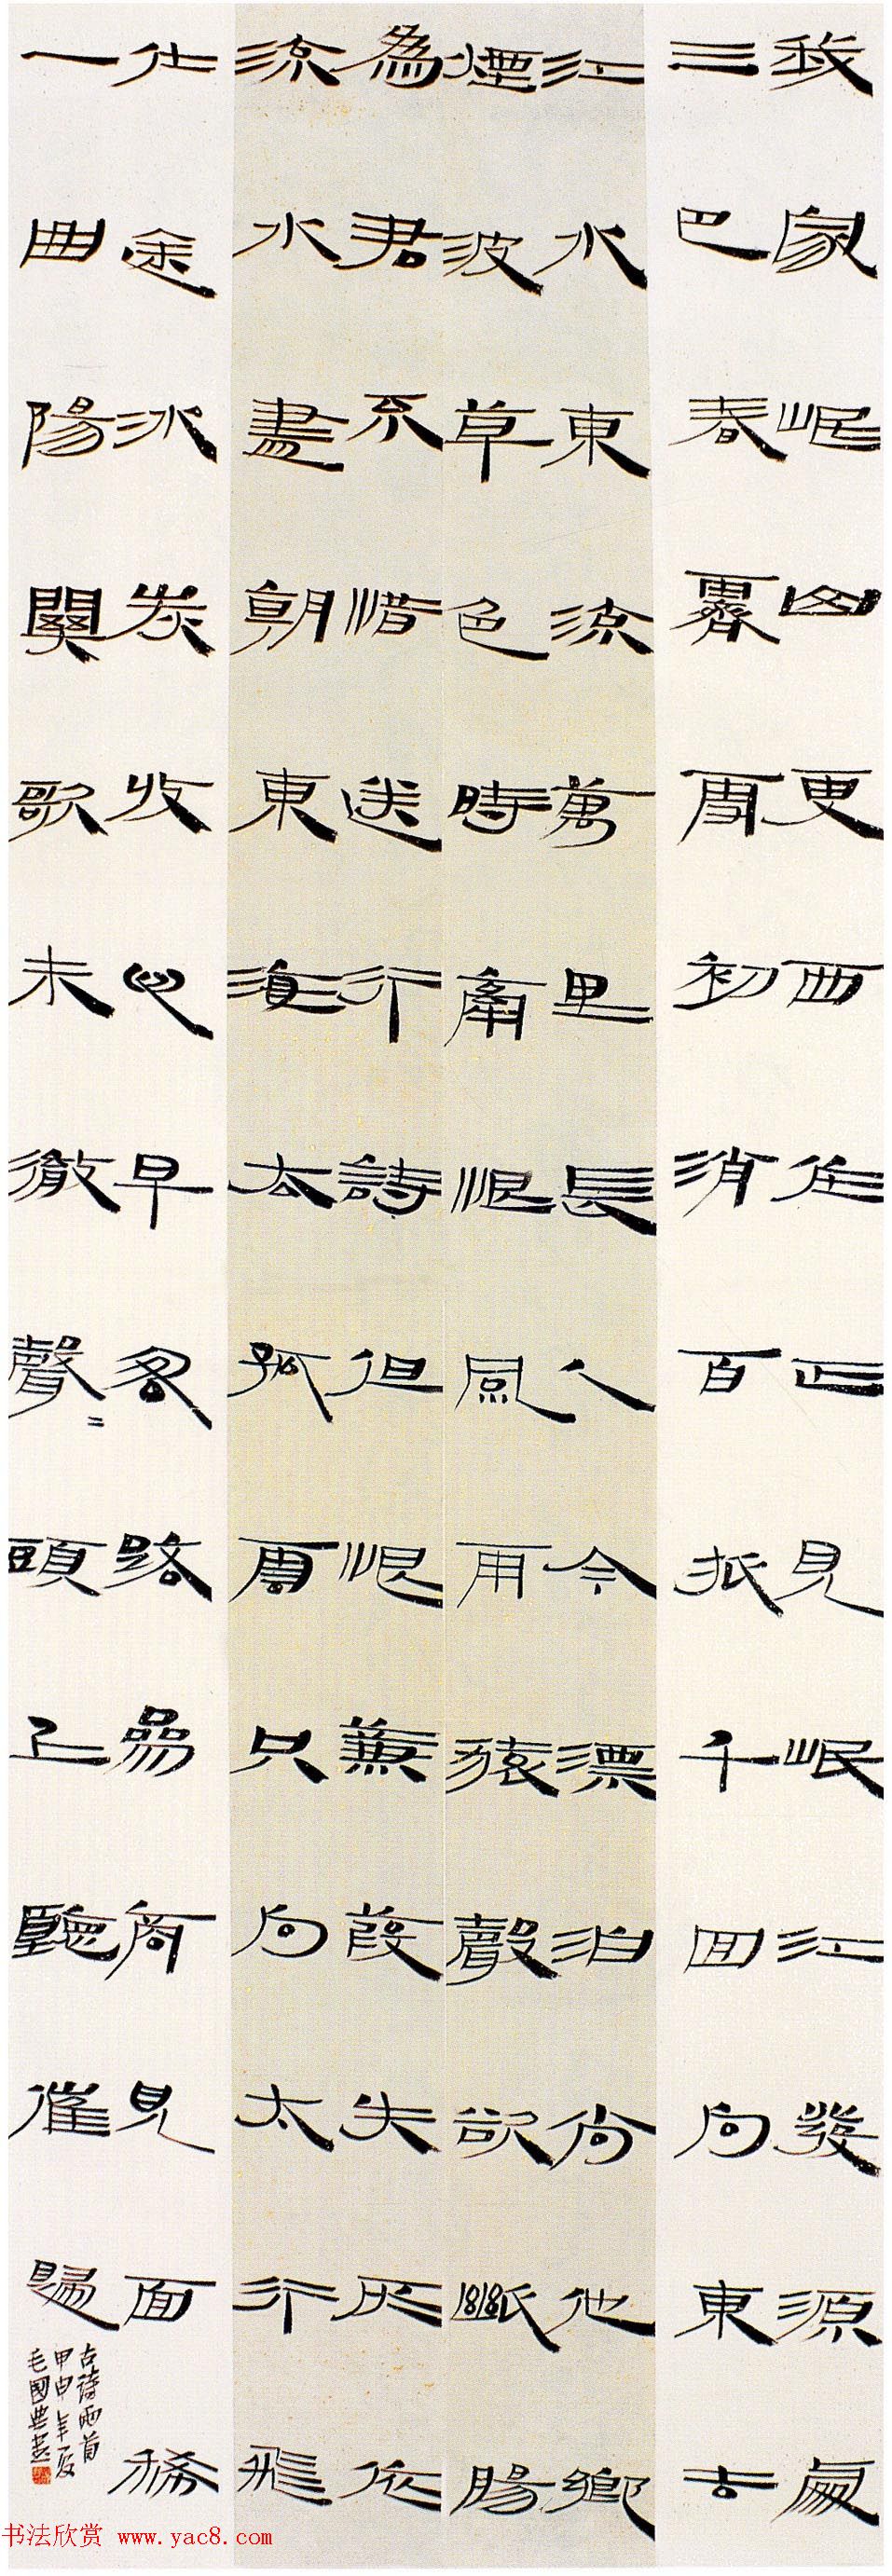 我家岷山更西住正見岷江發源處
三巴春霽雪初消百折千回向東去
江水東流萬里長人今漂泊尚他鄉
煙波草色時牽恨風雨猿聲欲斷腸
為君不惜送行詩但恨蒹葭失所依
流水盡朝東海去孤雲只向太行飛
仕途冰炭收心早客路參商見面稀
一曲陽關歌未徹聲〻頭上聽催歸
古詩兩首
甲申年夏
毛國典書
书法欣赏 www.yac8.com